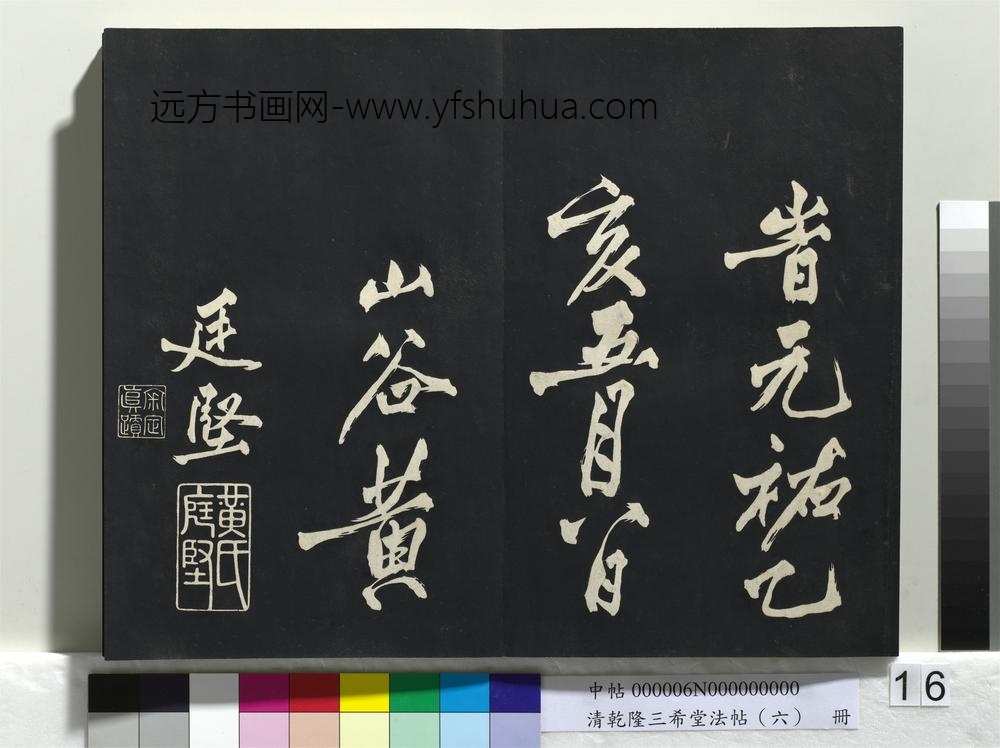 远方书画网-www.yfshuhua.com
旹元祐乙
亥五月八日
山谷黄
廷堅
黃氏庭堅
余定眞蹟
中帖000006N000000000
清乾隆三希堂法帖(六) 冊
16